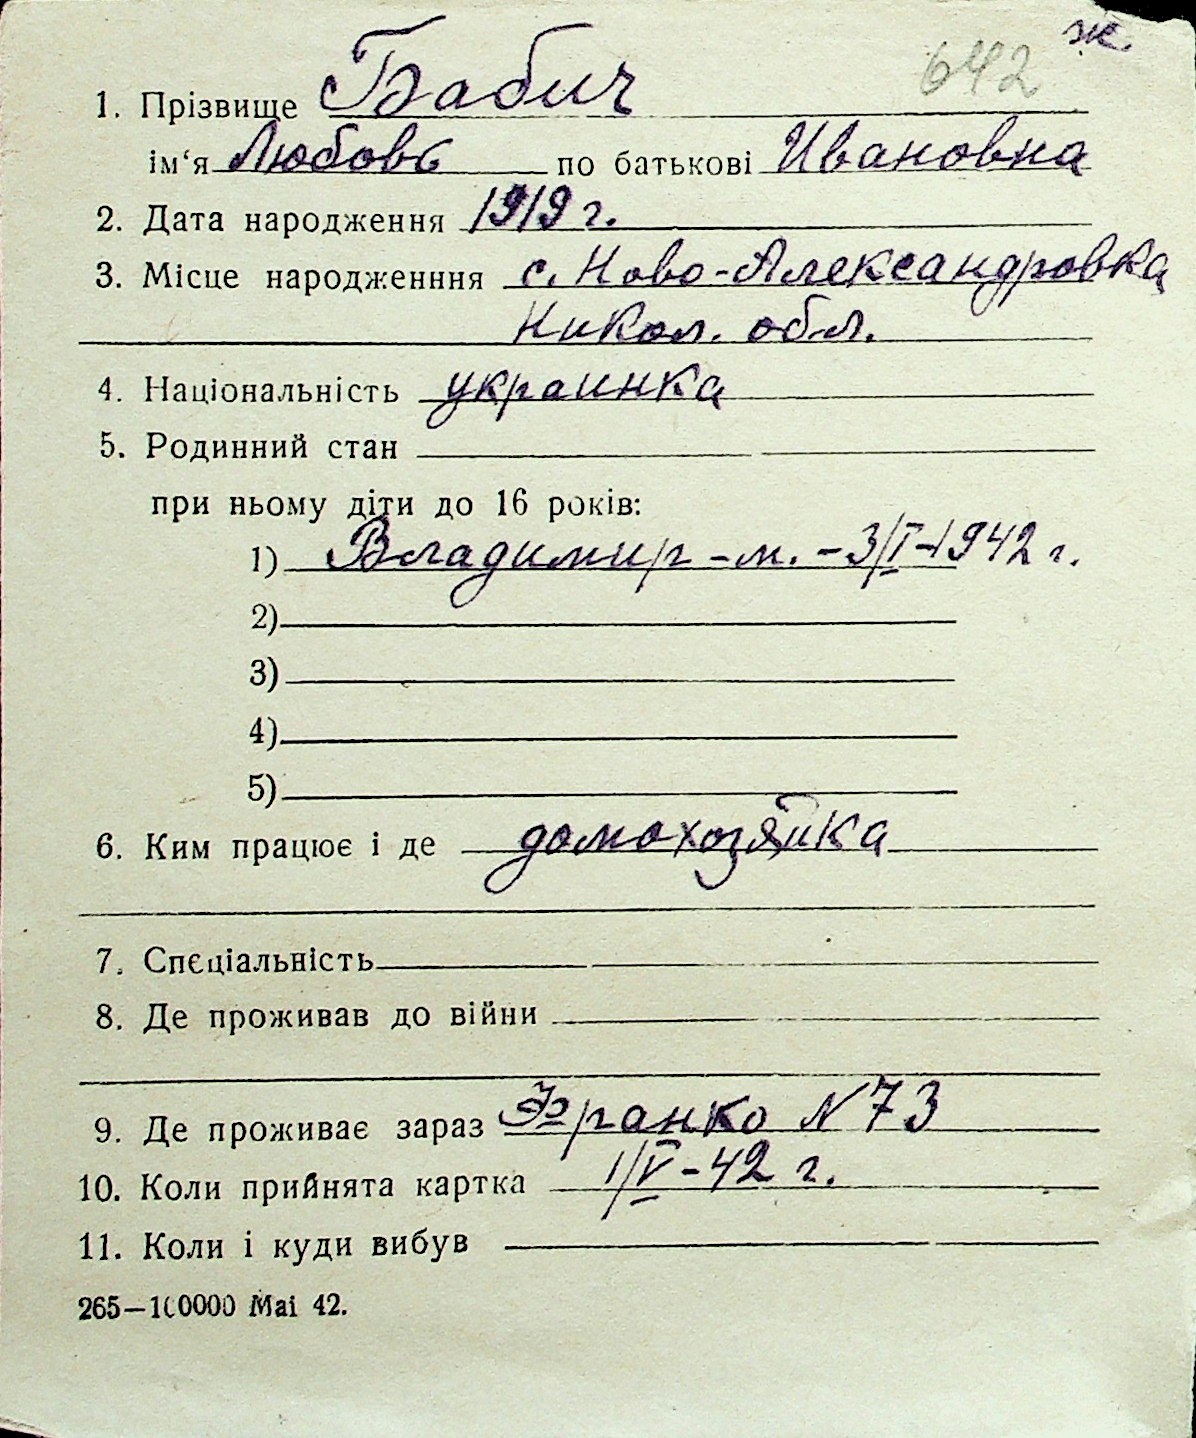 ж.
642
1. Прізвище Бабич
ім‘я Любовь по батькові Ивановна
2. Дата народження 1919 г.
3. Місце народженння с. Ново-Александровка
Никол. обл.
4. Національність украинка
5. Родинний стан
при ньому діти до 16 років:
1) Владимир - м. - 3/I-1942 г.
2)
3)
4)
5)
6. Ким працює і де домохозяйка
7. Спєціальність
8. Де проживав до війни
9. Де проживає зараз Франко N 73
10. Коли прийнята картка 1/V-42 г.
11. Коли і куди вибув
265—100000 Mai 42.